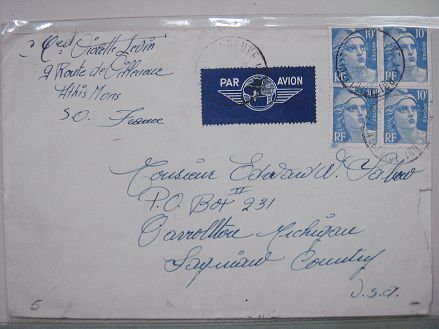 Odette Levin
9 Route de
Athis Mons
S.O. France
PAR AVION
10F 10F
RF RF
10F 10F
RF RF
Monsieur Edward W.
II
P.O. Box 231
Carrollton Michigan
Saginaw Country
U.S.A.
5